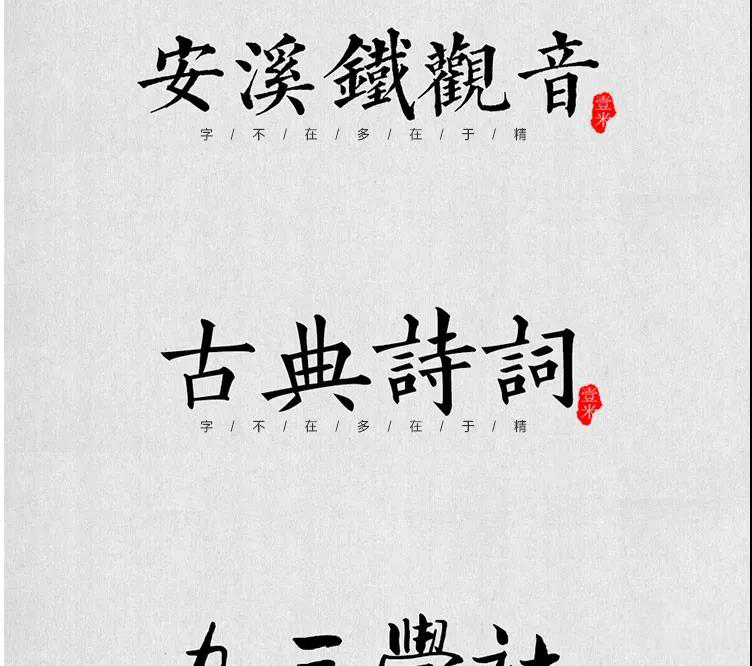 安溪鐵觀音
壹米
字/不/在/多/在/于/精
古典詩詞
壹米
字/不/在/多/在/于/精
九三學社